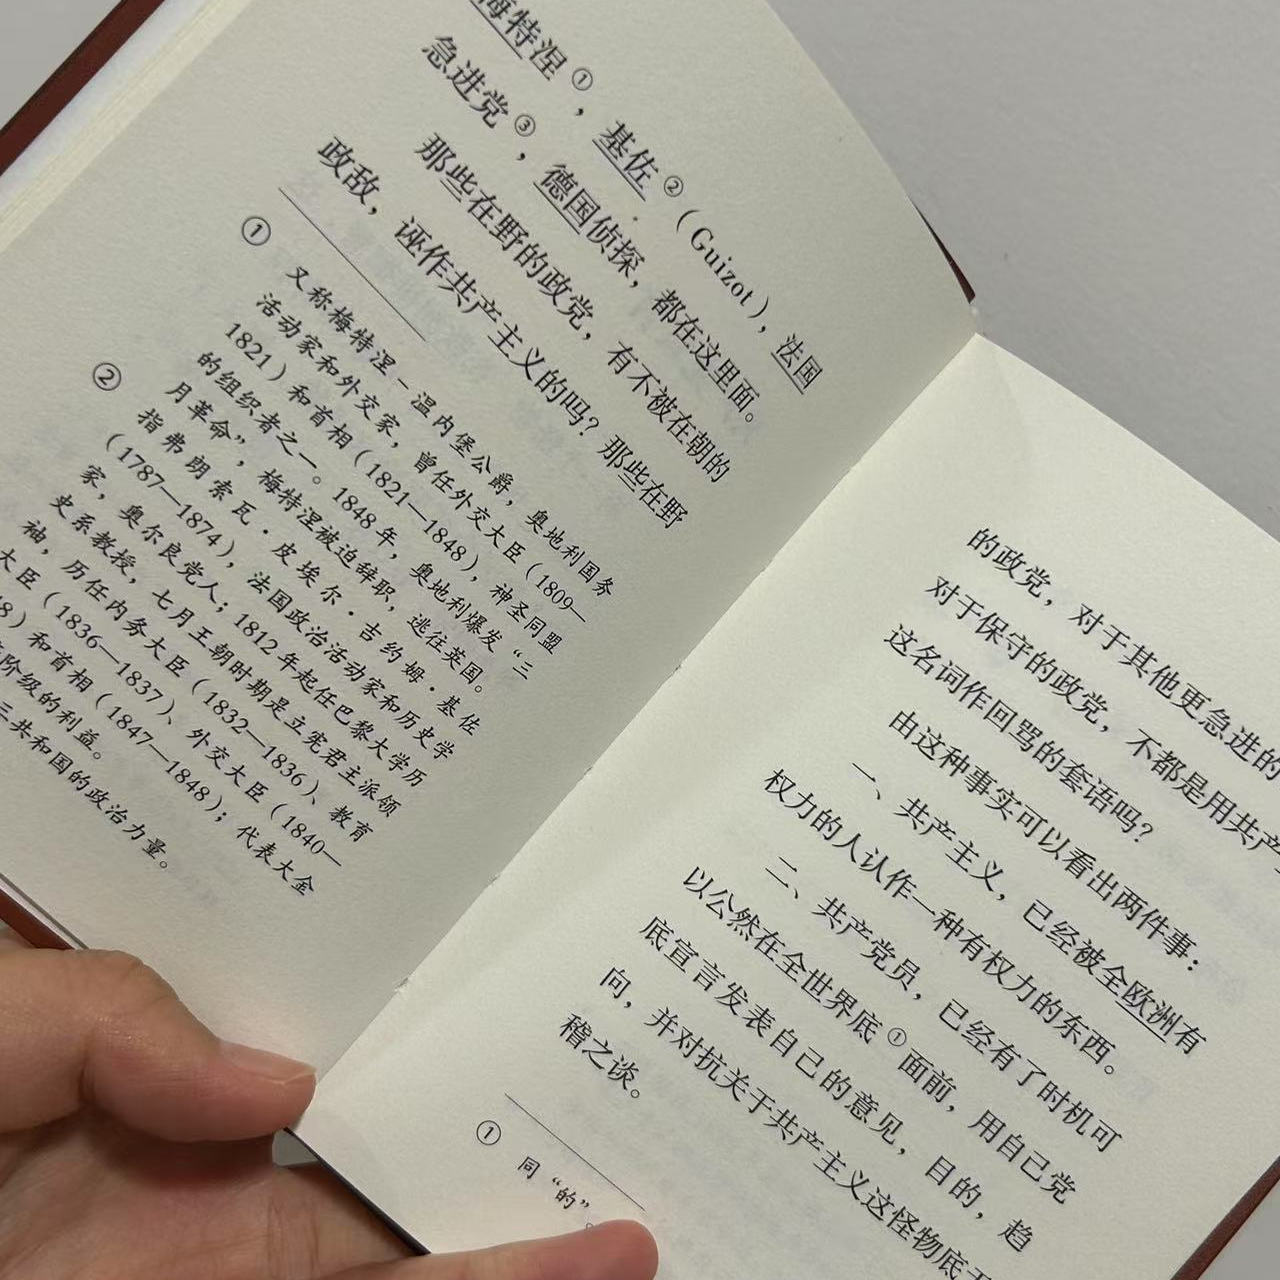 梅特涅①，基佐②（Guizot），法国
急进党③，德国侦探，都在这里面。
那些在野的政党，有不被在朝的
政敌，诬作共产主义的吗？那些在野
① 又称梅特涅－温内堡公爵，奥地利国务
活动家和外交家，曾任外交大臣（1809—
1821）和首相（1821—1848），神圣同盟
的组织者之一。1848年，奥地利爆发“三
月革命”，梅特涅被迫辞职，逃往英国。
② 指弗朗索瓦·皮埃尔·吉约姆·基佐
（1787—1874），法国政治活动家和历史学
家，奥尔良党人；1812年起任巴黎大学历
史系教授，七月王朝时期是立宪君主派领
袖，历任内务大臣（1832—1836）、教育
大臣（1836—1837）、外交大臣（1840—
48）和首相（1847—1848）；代表大金
阶级的利益。
三共和国的政治力量。
的政党，对于其他更急进的
对于保守的政党，不都是用共产
这名词作回骂的套语吗？
由这种事实可以看出两件事：
一、共产主义，已经被全欧洲有
权力的人认作一种有权力的东西。
二、共产党员，已经有了时机可
以公然在全世界底①面前，用自己党
底宣言发表自己的意见，目的，趋
向，并对抗关于共产主义这怪物底无
稽之谈。
① 同“的”。